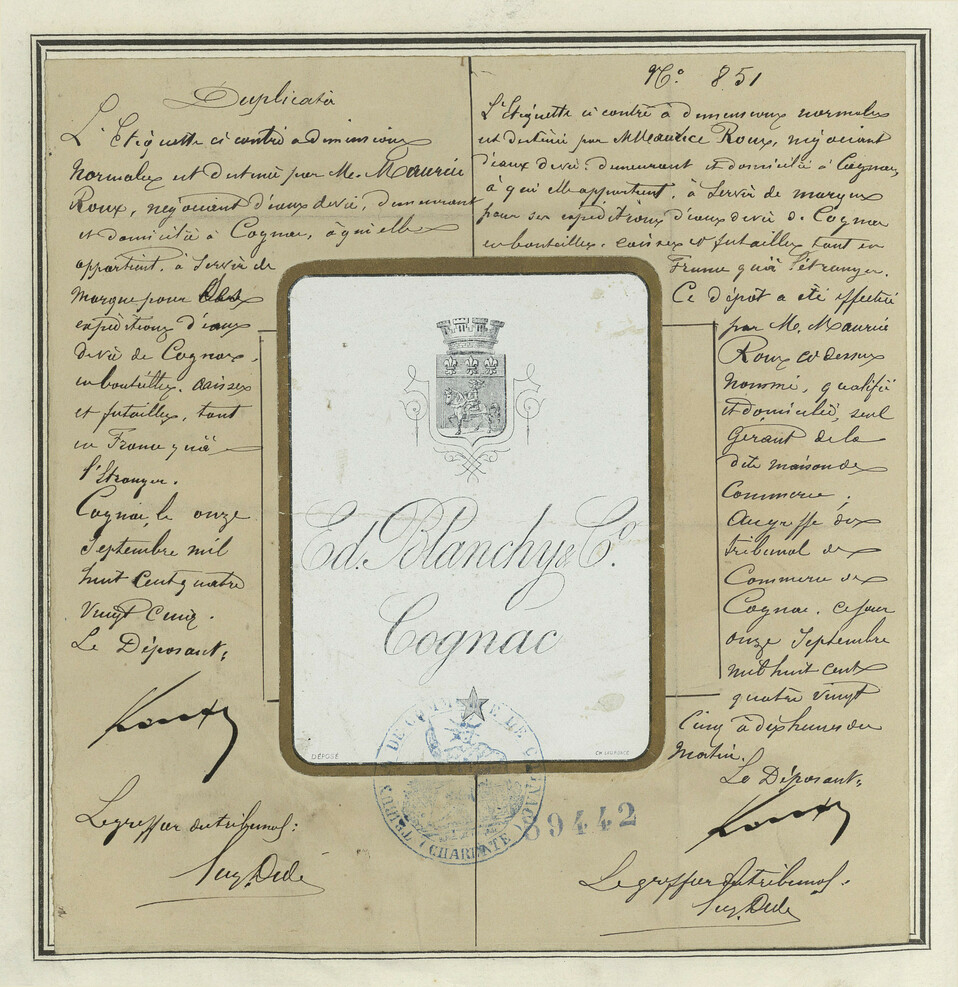 Duplicata
L'Etiquette ci contre à dimensions
Normales est destinée par Mr. Maurice
Roux, négociant d'eaux de vie, demeurant
et domicilié à Cognac, à qui elle
appartient, à Servir de
Marque pour ses
expéditions d'eaux
de vie de Cognac,
en bouteilles, caisses
et futailles, tant
en France qu'à
l'étranger.
Cognac, le onze
Septembre mil
huit cent quatre
Vingt Cinq.
Le Déposant:
Roux
Le greffier du tribunal:
No. 851
L'Etiquette ci contre à dimensions normales
est destinée par M Maurice Roux, négociant
d'eaux de vie, demeurant et domicilié à Cognac,
à qui elle appartient, à Servir de marque
pour ses expéditions d'eaux de vie de Cognac
en bouteilles, caisses et futailles tant en
France qu'à l'étranger.
Ce dépôt a été effectué
par Mr. Maurice
Roux ci dessus
Nommé, qualifié
et domicilié, seul
Gérant de la
dite maison de
Commerce,
Au greffe du
tribunal de
Commerce de
Cognac, ce jour
onze Septembre
mil huit cent
quatre vingt
Cinq à dix heures du
Matin.
Le Déposant:
Roux
Le greffier du tribunal:
Ed. Blanchy & Co.
Cognac
DÉPOSÉ
TRIBUNAL DE COMMERCE DE COGNAC
(CHARENTE)
89442